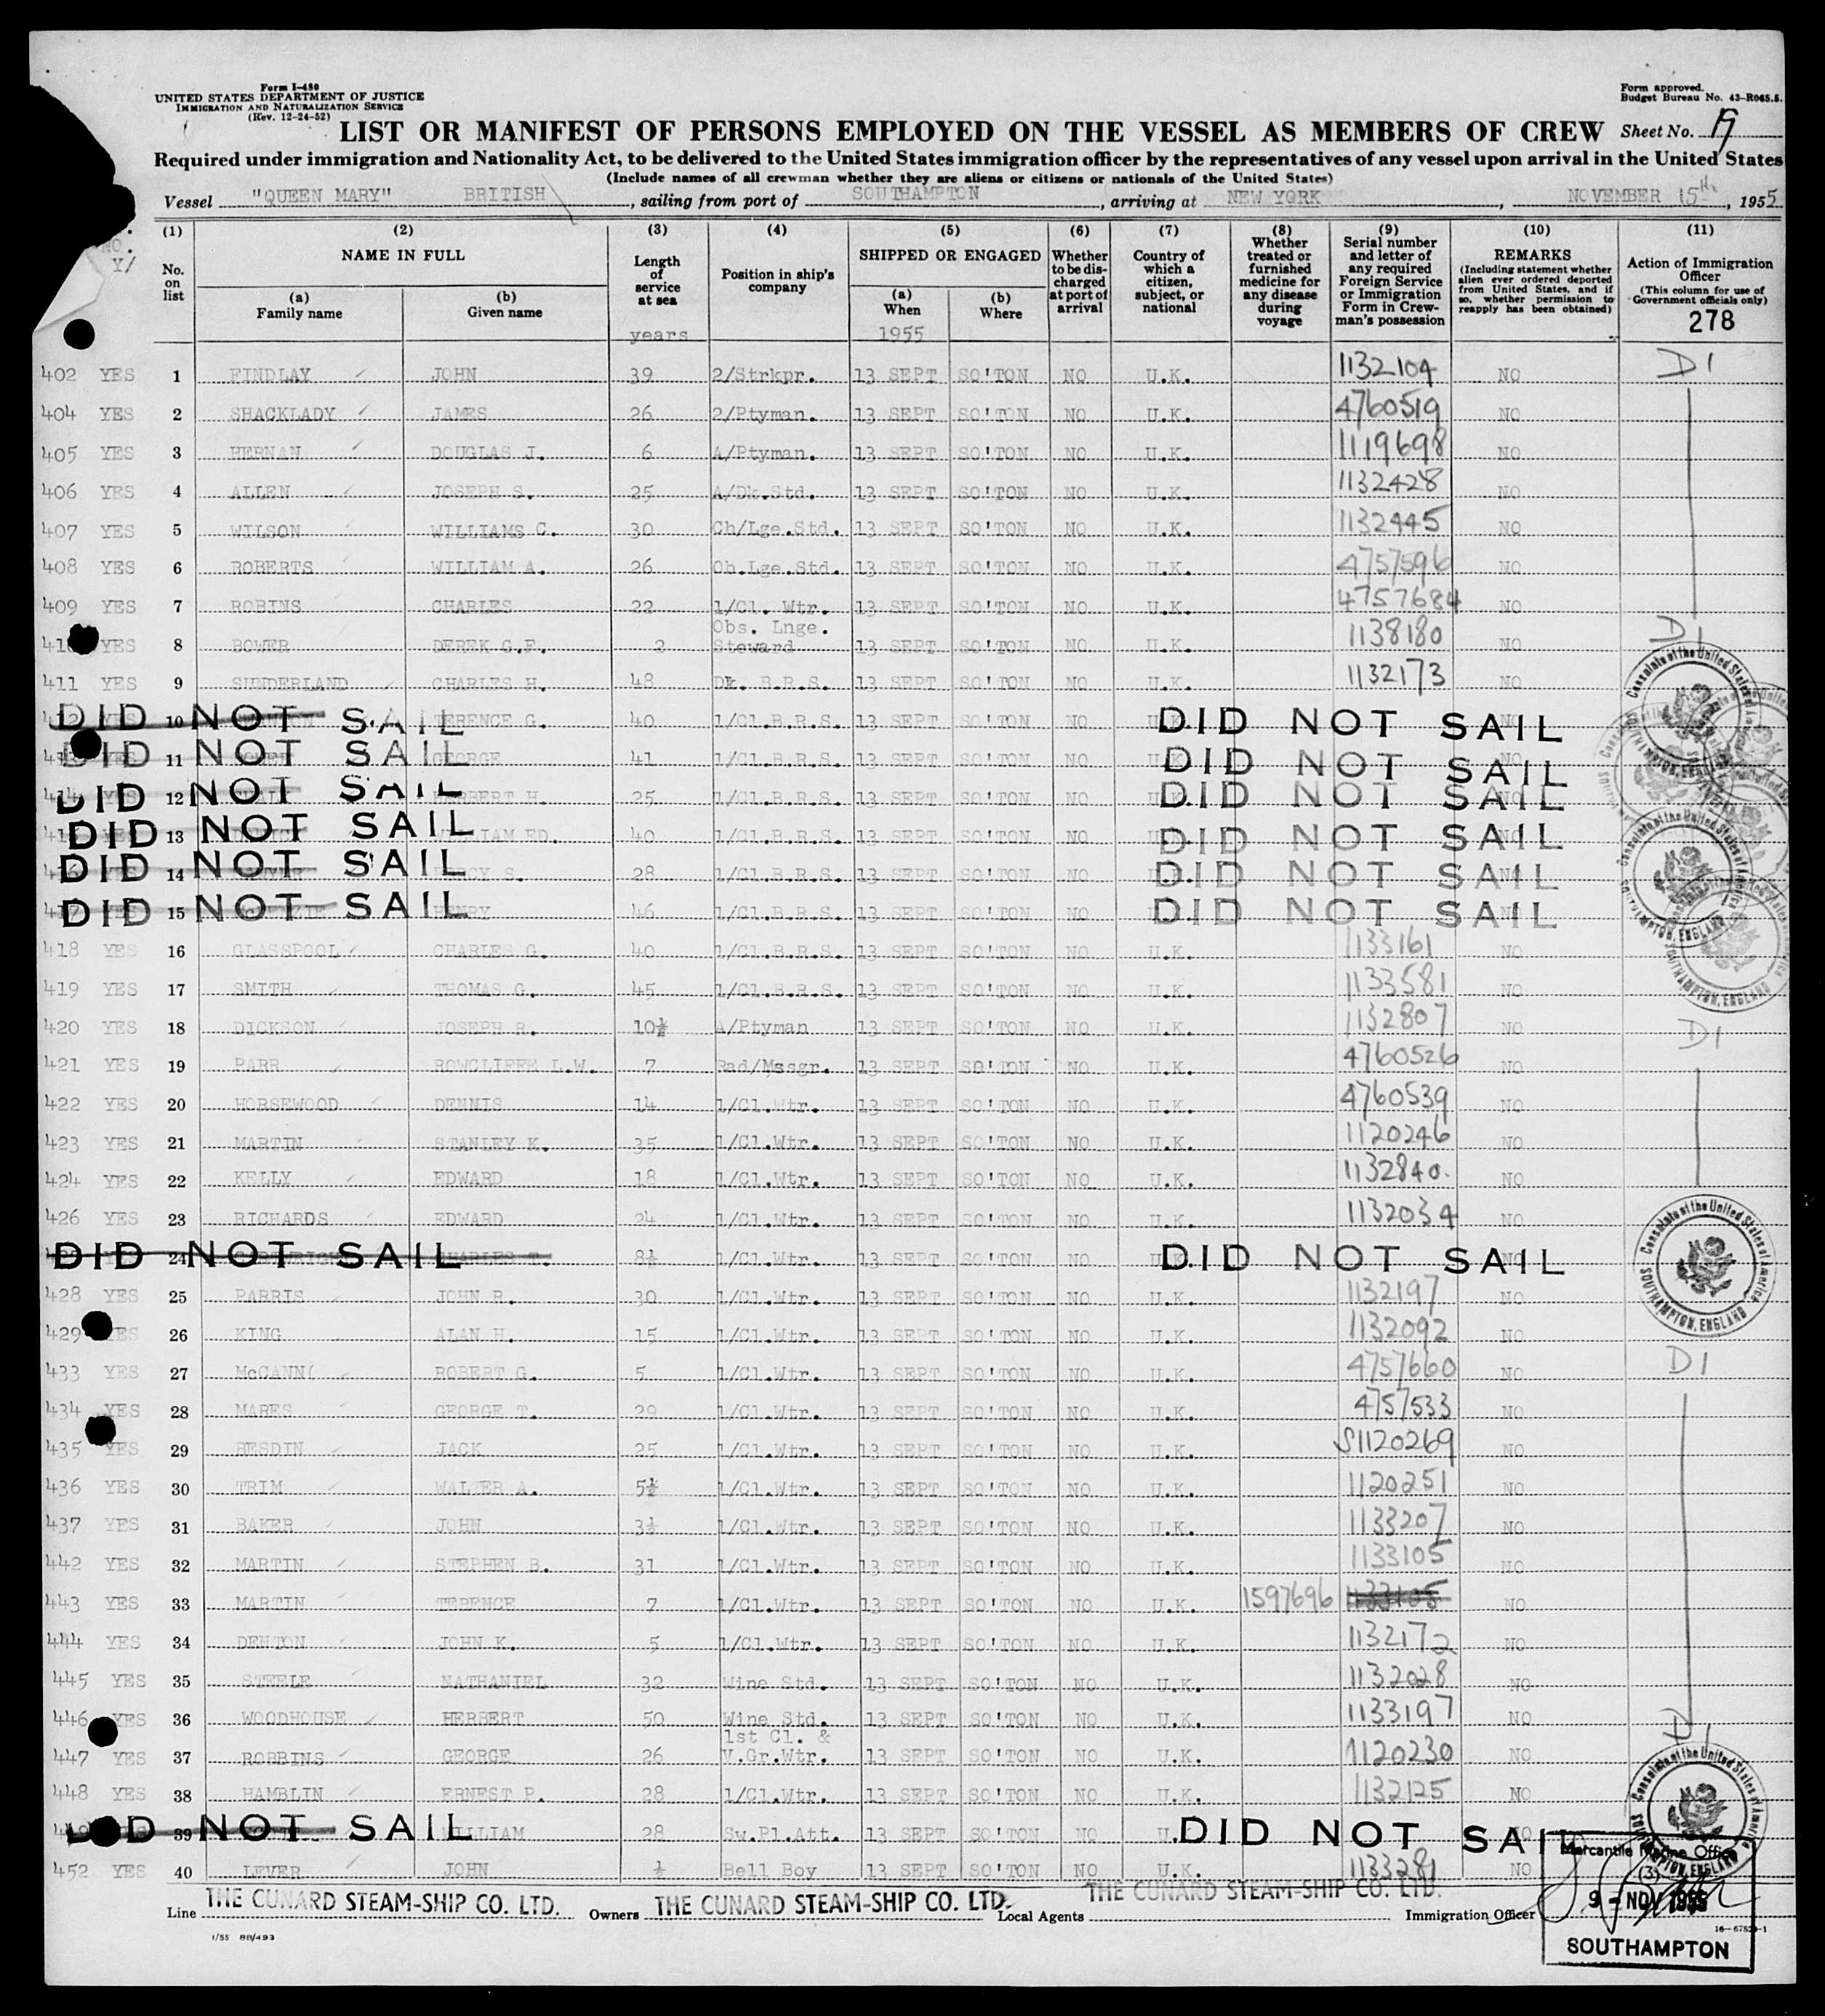 Form I-480
UNITED STATES DEPARTMENT OF JUSTICE
IMMIGRATION AND NATURALIZATION SERVICE
(Rev. 12-24-52)
Form approved.
Budget Bureau No. 43-R065.5.
LIST OR MANIFEST OF PERSONS EMPLOYED ON THE VESSEL AS MEMBERS OF CREW Sheet No. 19
Required under immigration and Nationality Act, to be delivered to the United States immigration officer by the representatives of any vessel upon arrival in the United States
(Include names of all crewman whether they are aliens or citizens or nationals of the United States)
Vessel "QUEEN MARY" BRITISH, sailing from port of SOUTHAMPTON, arriving at NEW YORK, NOVEMBER 15th, 1955
(1) No. on list
(2) NAME IN FULL
(a) Family name
(b) Given name
(3) Length of service at sea
years
(4) Position in ship's company
(5) SHIPPED OR ENGAGED
(a) When
1955
(b) Where
(6) Whether to be discharged at port of arrival
(7) Country of which a citizen, subject, or national
(8) Whether treated or furnished medicine for any disease during voyage
(9) Serial number and letter of any required Foreign Service or Immigration Form in Crewman's possession
(10) REMARKS
(Including statement whether alien ever ordered deported from United States, and if so, whether permission to reapply has been obtained)
(11) Action of Immigration Officer
(This column for use of Government officials only)
278
402 YES 1 FINDLAY JOHN 39 2/Strkpr. 13 SEPT SO'TON NO U.K. 1132104 NO D1
404 YES 2 SHACKLADY JAMES 26 2/Ptyman. 13 SEPT SO'TON NO U.K. 4760519 NO
405 YES 3 HERNAN DOUGLAS J. 6 A/Ptyman. 13 SEPT SO'TON NO U.K. 1119698 NO
406 YES 4 ALLEN JOSEPH S. 25 A/Dk.Std. 13 SEPT SO'TON NO U.K. 1132428 NO
407 YES 5 WILSON WILLIAMS C. 30 Ch/Lge.Std. 13 SEPT SO'TON NO U.K. 1132445 NO
408 YES 6 ROBERTS WILLIAM A. 26 Ob.Lge.Std. 13 SEPT SO'TON NO U.K. 4757596 NO
409 YES 7 ROBINS CHARLES 22 1/Cl. Wtr. 13 SEPT SO'TON NO U.K. 4757684 NO
410 YES 8 BOWER DEREK G.F. 2 Obs. Lnge. Steward 13 SEPT SO'TON NO U.K. 1138180 NO D1
411 YES 9 SUNDERLAND CHARLES H. 48 Dk. B.R.S. 13 SEPT SO'TON NO U.K. 1132173 NO
DID NOT SAIL 10 TERENCE G. 40 1/Cl.B.R.S. 13 SEPT SO'TON NO DID NOT SAIL
DID NOT SAIL 11 GEORGE 41 1/Cl.B.R.S. 13 SEPT SO'TON NO DID NOT SAIL
DID NOT SAIL 12 HERBERT H. 25 1/Cl.B.R.S. 13 SEPT SO'TON NO DID NOT SAIL
DID NOT SAIL 13 WILLIAM ED. 40 1/Cl.B.R.S. 13 SEPT SO'TON NO DID NOT SAIL
DID NOT SAIL 14 28 1/Cl.B.R.S. 13 SEPT SO'TON NO DID NOT SAIL
DID NOT SAIL 15 HENRY 46 1/Cl.B.R.S. 13 SEPT SO'TON NO DID NOT SAIL
418 YES 16 GLASSPOOL CHARLES G. 40 1/Cl.B.R.S. 13 SEPT SO'TON NO U.K. 1133161 NO
419 YES 17 SMITH THOMAS G. 45 1/Cl.B.R.S. 13 SEPT SO'TON NO U.K. 1133581 NO
420 YES 18 DICKSON JOSEPH R. 10½ A/Ptyman 13 SEPT SO'TON NO U.K. 1132807 NO D1
421 YES 19 PARR ROWCLIFFE L.W. 7 Rad/Mssgr. 13 SEPT SO'TON NO U.K. 4760526 NO
422 YES 20 HORSEWOOD DENNIS 14 1/Cl.Wtr. 13 SEPT SO'TON NO U.K. 4760539 NO
423 YES 21 MARTIN STANLEY K. 35 1/Cl.Wtr. 13 SEPT SO'TON NO U.K. 1120246 NO
424 YES 22 KELLY EDWARD 18 1/Cl.Wtr. 13 SEPT SO'TON NO U.K. 1132840. NO
426 YES 23 RICHARDS EDWARD 24 1/Cl.Wtr. 13 SEPT SO'TON NO U.K. 1132034 NO
DID NOT SAIL 24 CHARLES T. 8½ 1/Cl.Wtr. 13 SEPT SO'TON NO DID NOT SAIL
428 YES 25 PARRIS JOHN R. 30 1/Cl.Wtr. 13 SEPT SO'TON NO U.K. 1132197 NO
429 YES 26 KING ALAN H. 15 1/Cl.Wtr. 13 SEPT SO'TON NO U.K. 1132092 NO
433 YES 27 McCANN( ROBERT G. 5 1/Cl.Wtr. 13 SEPT SO'TON NO U.K. 4757660 NO D1
434 YES 28 MARES GEORGE T. 29 1/Cl.Wtr. 13 SEPT SO'TON NO U.K. 4757533 NO
435 YES 29 BESDIN JACK 25 1/Cl.Wtr. 13 SEPT SO'TON NO U.K. S1120269 NO
436 YES 30 TRIM WALTER A. 5½ 1/Cl.Wtr. 13 SEPT SO'TON NO U.K. 1120251 NO
437 YES 31 BAKER JOHN 3½ 1/Cl.Wtr. 13 SEPT SO'TON NO U.K. 1133207 NO
442 YES 32 MARTIN STEPHEN B. 31 1/Cl.Wtr. 13 SEPT SO'TON NO U.K. 1133105 NO
443 YES 33 MARTIN TERENCE 7 1/Cl.Wtr. 13 SEPT SO'TON NO U.K. 1597696 1133105 NO
444 YES 34 DENTON JOHN K. 5 1/Cl.Wtr. 13 SEPT SO'TON NO U.K. 1132172 NO
445 YES 35 STEELE NATHANIEL 32 Wine Std. 13 SEPT SO'TON NO U.K. 1132028 NO
446 YES 36 WOODHOUSE HERBERT 50 Wine Std. 13 SEPT SO'TON NO U.K. 1133197 NO
447 YES 37 ROBBINS GEORGE 26 1st Cl. & V.Gr.Wtr. 13 SEPT SO'TON NO U.K. 1120230 NO D1
448 YES 38 HAMBLIN ERNEST P. 28 1/Cl.Wtr. 13 SEPT SO'TON NO U.K. 1132125 NO
DID NOT SAIL 39 WILLIAM 28 Sw.Pl.Att. 13 SEPT SO'TON NO DID NOT SAIL
452 YES 40 LEVER JOHN ½ Bell Boy 13 SEPT SO'TON NO U.K. 1133281 NO
Consulate of the United States of America
SOUTHAMPTON, ENGLAND
Line THE CUNARD STEAM-SHIP CO. LTD. Owners THE CUNARD STEAM-SHIP CO. LTD. Local Agents THE CUNARD STEAM-SHIP CO. LTD. Immigration Officer
Mercantile Marine Office
(3)
9 - NOV 1955
SOUTHAMPTON
1/55 88/493